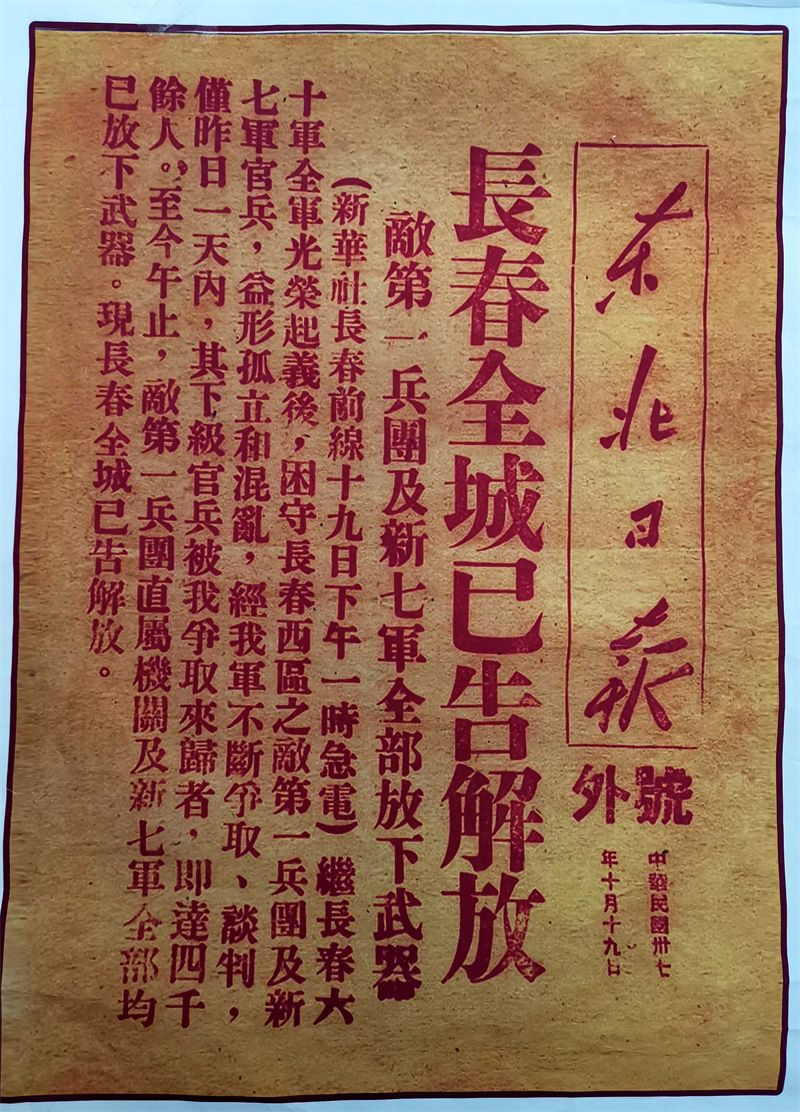 东北日报
號外
中華民國卅七
年十月十九日
長春全城已告解放
敵第一兵團及新七軍全部放下武器
（新華社長春前線十九日下午一時急電）繼長春六
十軍全軍光榮起義後，困守長春西區之敵第一兵團及新
七軍官兵，益形孤立和混亂，經我軍不斷爭取、談判，
僅昨日一天內，其下級官兵被我爭取來歸者，即達四千
餘人。至今午止，敵第一兵團直屬機關及新七軍全部均
已放下武器。現長春全城已告解放。